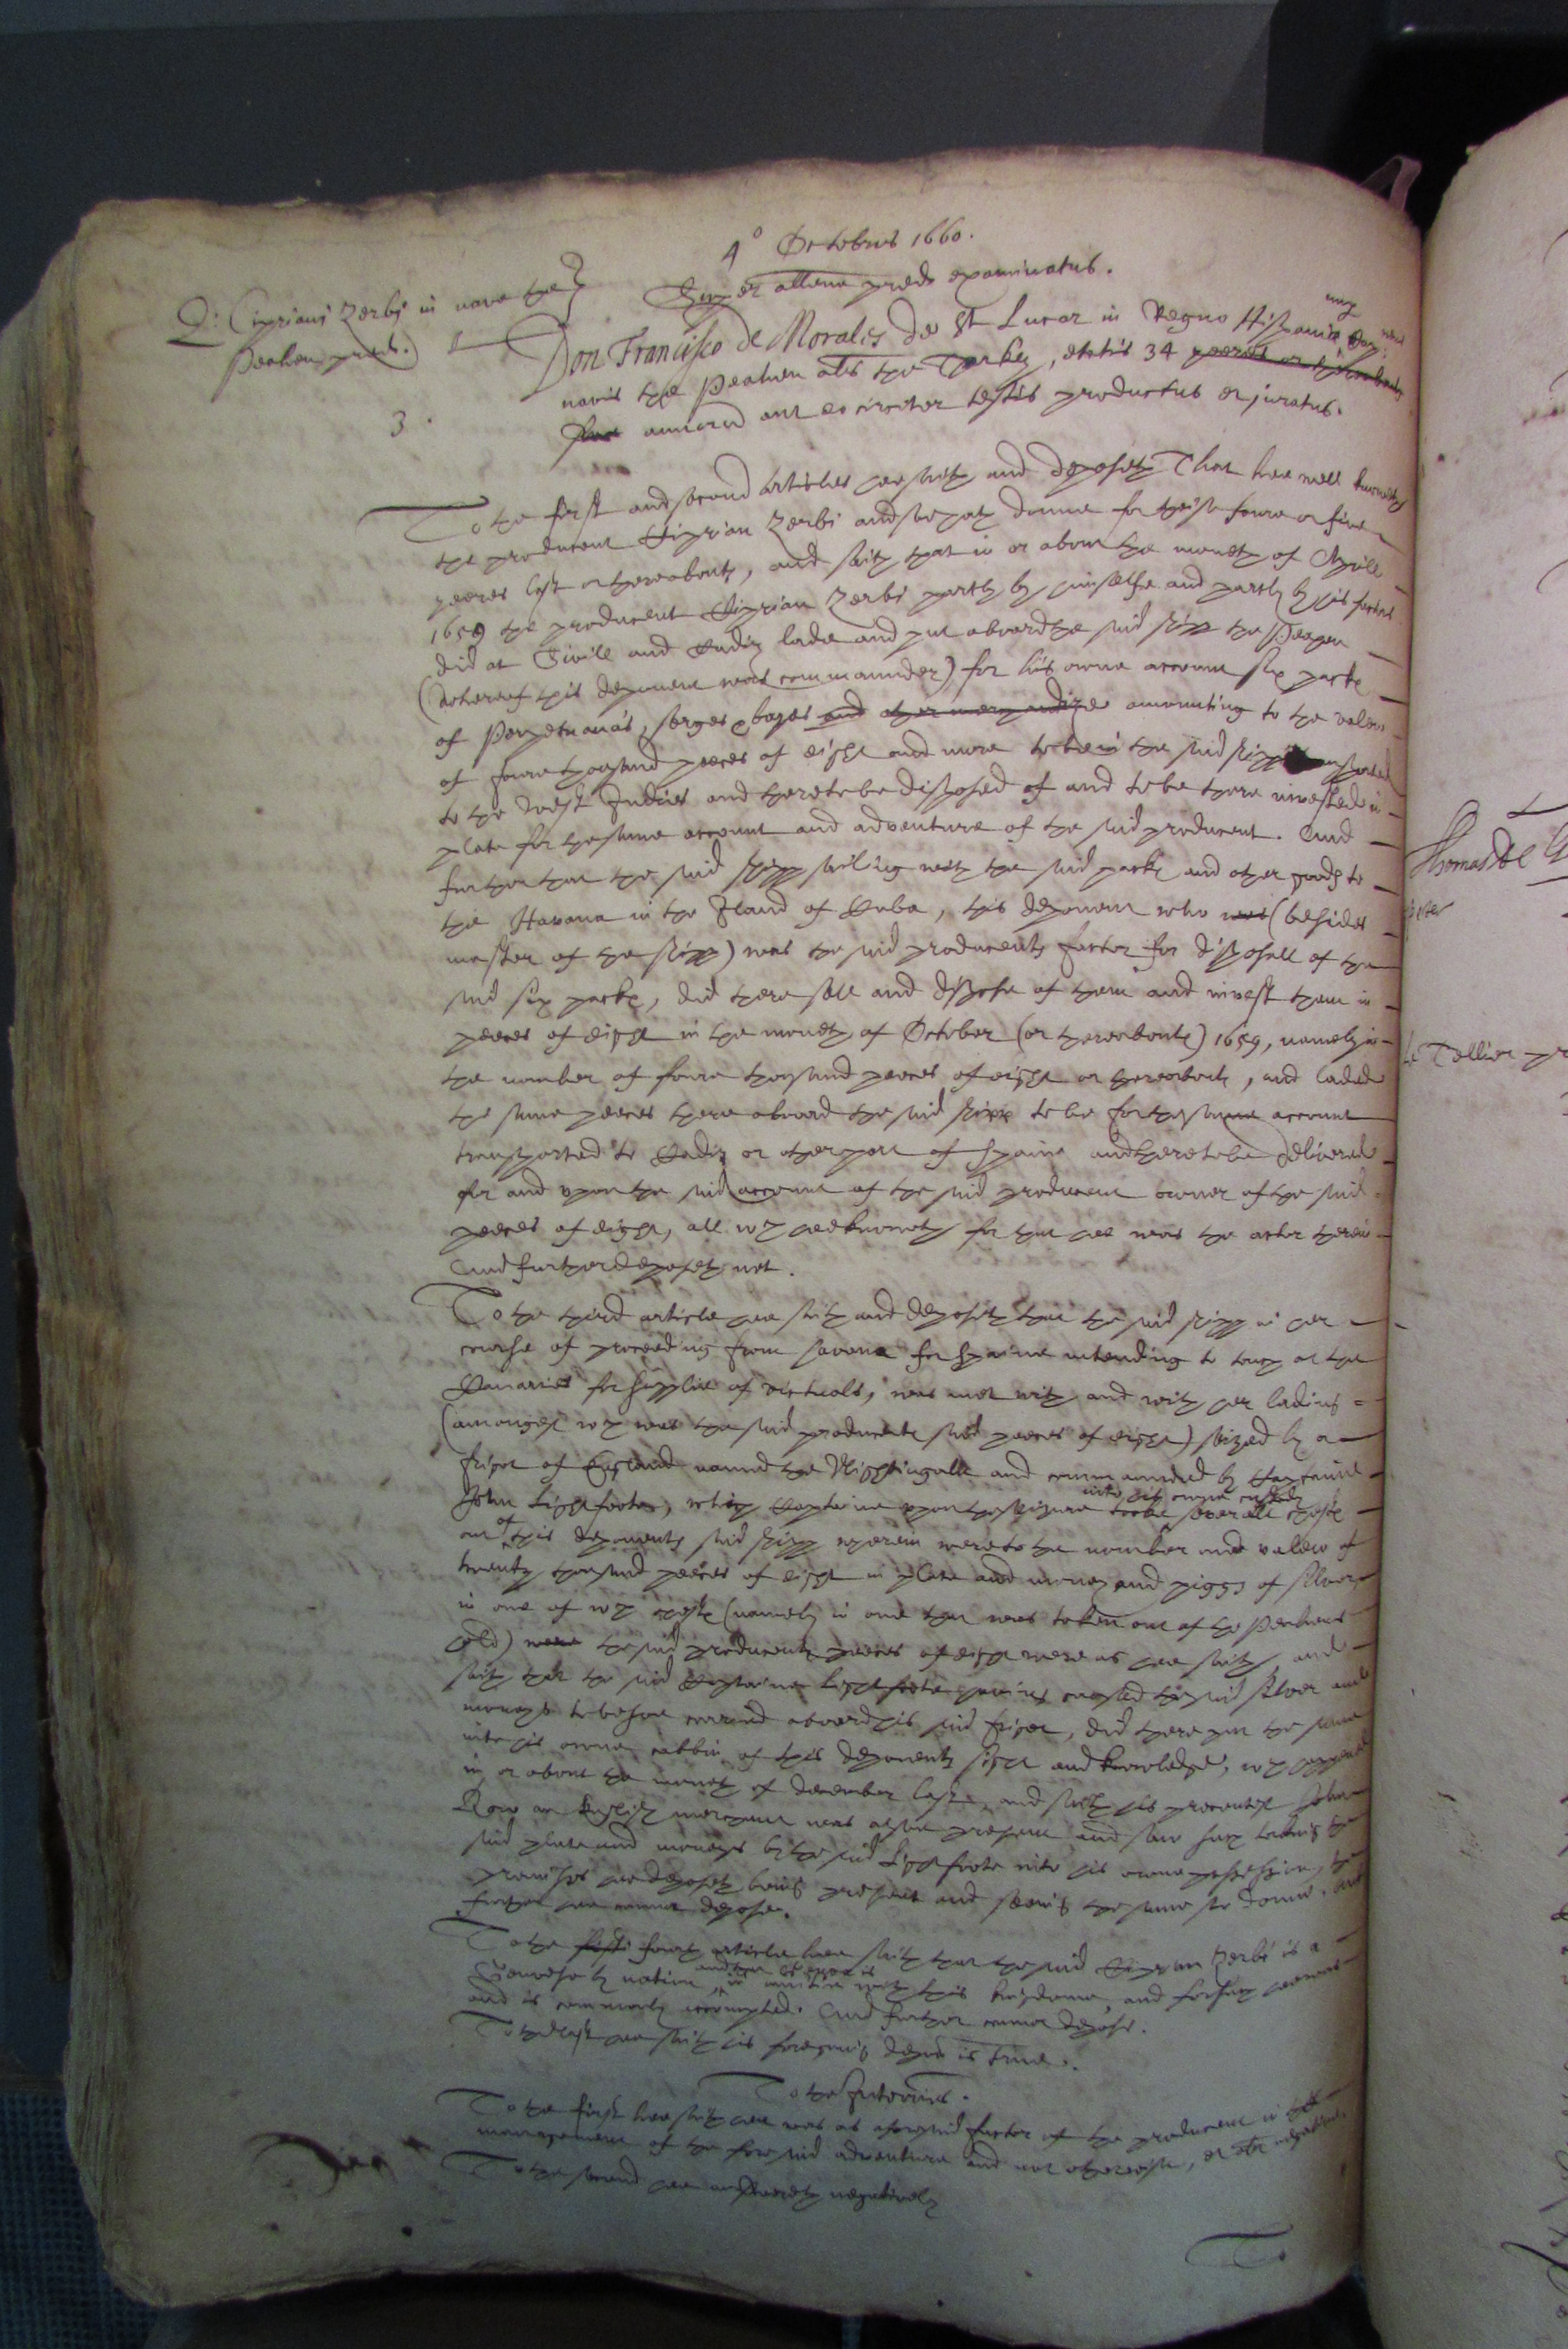 4º Octobris 1660.
Super allone pred examinatus.
D: Cipriani Zerbi in nave the
Peahen pred.
3.
Don Francisco de Morales de St Lucar in Regno Hispaniæ
navis the Peahen als the Turkey, ætatis 34 yeares or thereabouts
annorum aut eo circiter testis productus et juratus.
To the first and second articles hee saith and deposeth That hee well knoweth
the producent Ciprian Zerbi and soe hath donne for theise foure or five
yeares last or thereabouts, and saith that in or about the moneth of Aprill
1659 the producent Ciprian Zerbi partly by himselfe and partly by his factors
did at Sivill and Cadiz lade and put aboard the said shipp the Peahen
(whereof this deponent was commaunder) for his owne account six packs
of Perpetuana's, serges & bayes and other merchandize amounting to the valew
of foure thousand peeces of eight and more to be in the said shipp transported
to the West Indies and there to be disposed of and to be there invested in
plate for the same account and adventure of the said producent. And
further that the said shipp sailing with the said packs and other goods to
the Havana in the Iland of Cuba, this deponent who was (besides
master of the shipp) was the said producents factor for disposall of the
said six packs, did there sell and dispose of them and invest them in
peeces of eight in the moneth of October (or thereabouts) 1659, namely in
the number of foure thousand peeces of eight or thereabouts, and laded
the same peeces there aboard the said shipp to be for the same account
transported to Cadiz or other port of Spaine and there to be delivered
for and upon the said account of the said producent owner of the said
peeces of eight, all wch hee knoweth for that hee was the actor therein
And further deposeth not.
To the third article hee saith and deposeth that the said shipp in her
course of proceeding from Havana for Spaine intending to touch at the
Canaries for supplie of victuals, was met with and with her lading
(amongst wch was the said producents said peeces of eight) seized by a
frigot of England named the Nightingale and commaunded by Captaine
John Lightfoote, which Captaine upon the seizure tooke into his owne custody severall chests
out of this deponents said shipp wherein were to the number and valew of
twenty thousand peeces of eight in plate and money and piggs of silver
in one of wch chests (namely in one that was taken out of the Peahens
hold) were the said producents peeces of eight were as hee saith, and
saith that the said Captaine Lightfoote having caused the said silver and
moneys to be soe carried aboard his said frigot, did there put the same
into his owne cabbin of this deponents sight and knowledge, wch happened
in or about the moneth of December last, and saith his precontest John
Row an English merchant was alsoe present and saw such taking the
said plate and moneys by the said Lightfoote into his owne possession, the
premises hee deposeth being present and seeing the same soe donne, and
further hee cannot depose.
To the fifth fourth article hee saith that the said Ciprian Zerbi is a
Genoese by nation, and that Genoa is in amitie with this kingdome, and for such
and is commonly accompted. And further cannot depose.
To the last hee saith his foregoing depon is true.
To the Interries.
To the first hee saith hee was as aforesaid factor of the producent in the
management of the foresaid adventure and not otherwise, et negative.
To the second hee answereth negatively
To
Thomas De
Tellier